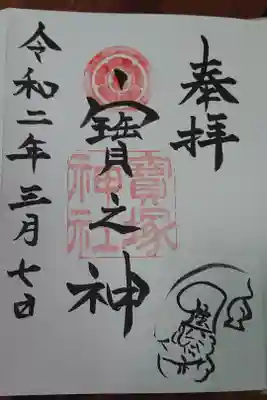 奉拝
寶之神
寶塚
神社
令和二年三月七日